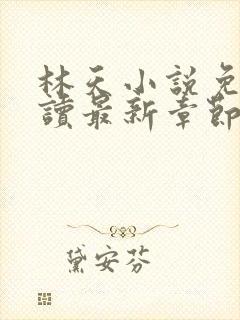 林天小說免
讀最新章節
黛安芬